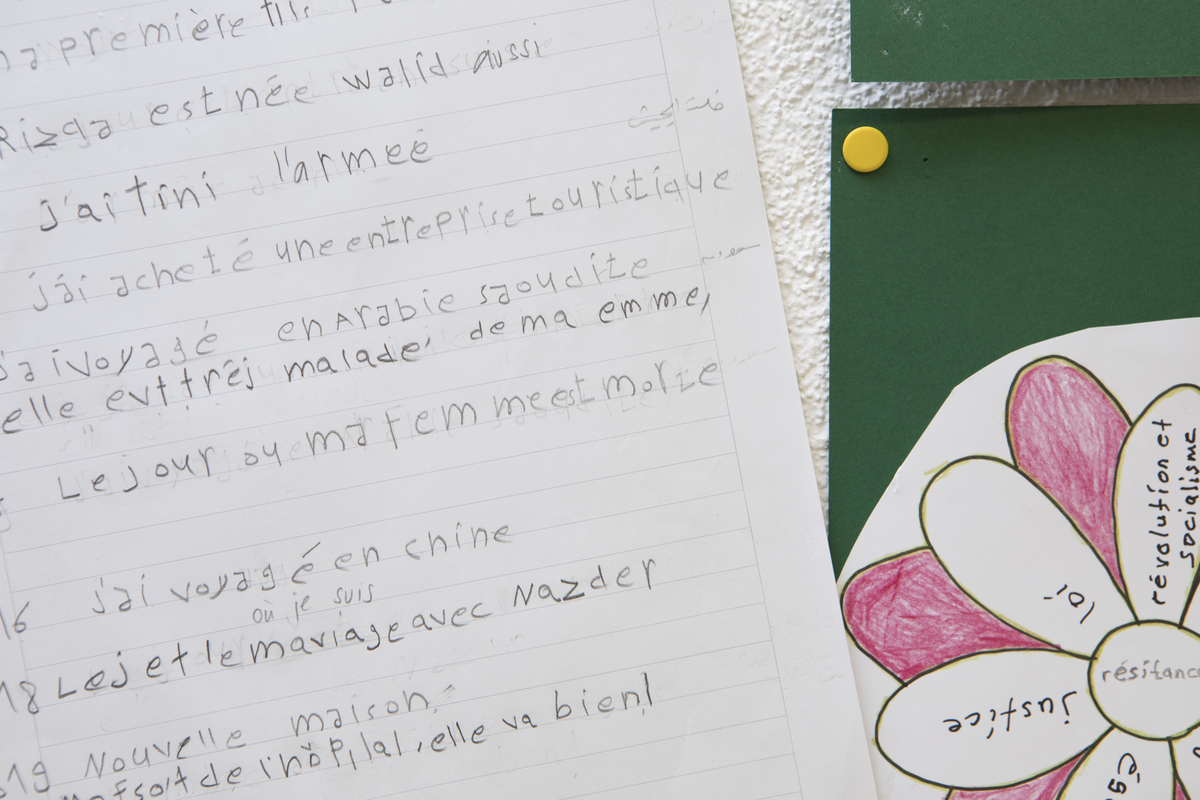 ma première fils
Rizga est née walid aussi
j'ai tini l'armeé
j'ai acheté une entreprise touristique
j'ai voyagé en Arabie saoudite
elle evt trêj malade, de ma emme,
Le jour ou ma femme est morte
16 j'ai voyagé en chine
où je suis
18 Lej et le mariage avec Nazder
19 Nouvelle maison.
de l'hôpilal, elle va bien!
révolution et
socialisme
loi
résitance
justice